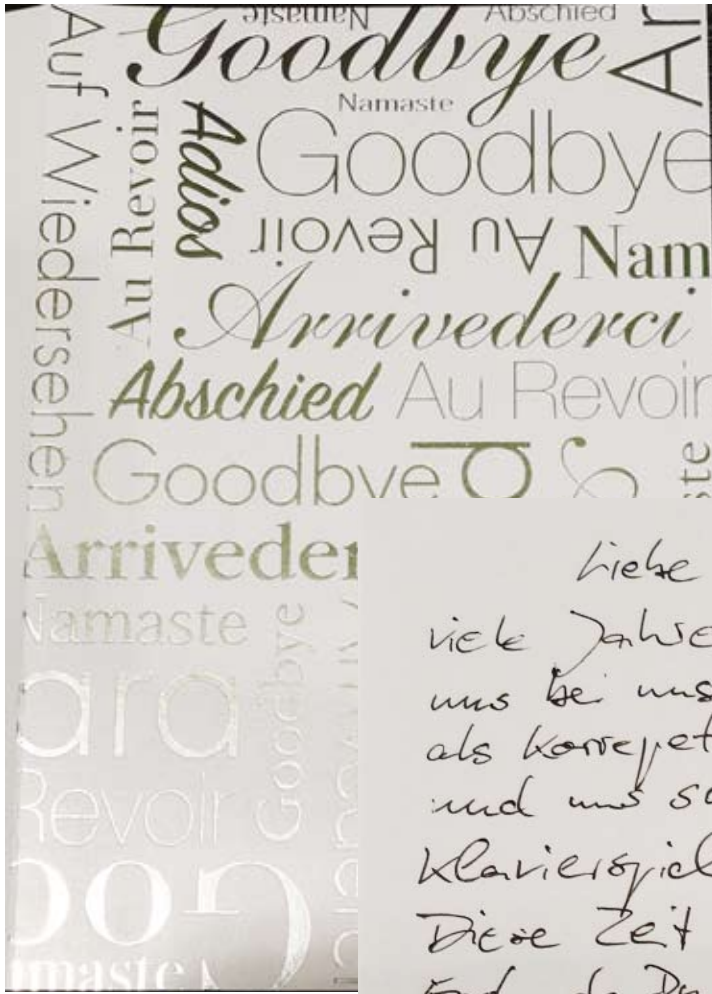 Namaste
Abschied
Goodbye
Ar
Auf Wiedersehen
Au Revoir
Adios
Namaste
Goodbye
Au Revoir
Nam
Arrivederci
Abschied
Au Revoir
Goodbye
ste
Arriveder
Namaste
Goodbye
ara
Revoir
oo
G
amaste
Liebe
viele Jahre
uns bei uns
als Korrepet
und uns so
Klavierspiel
Diese Zeit